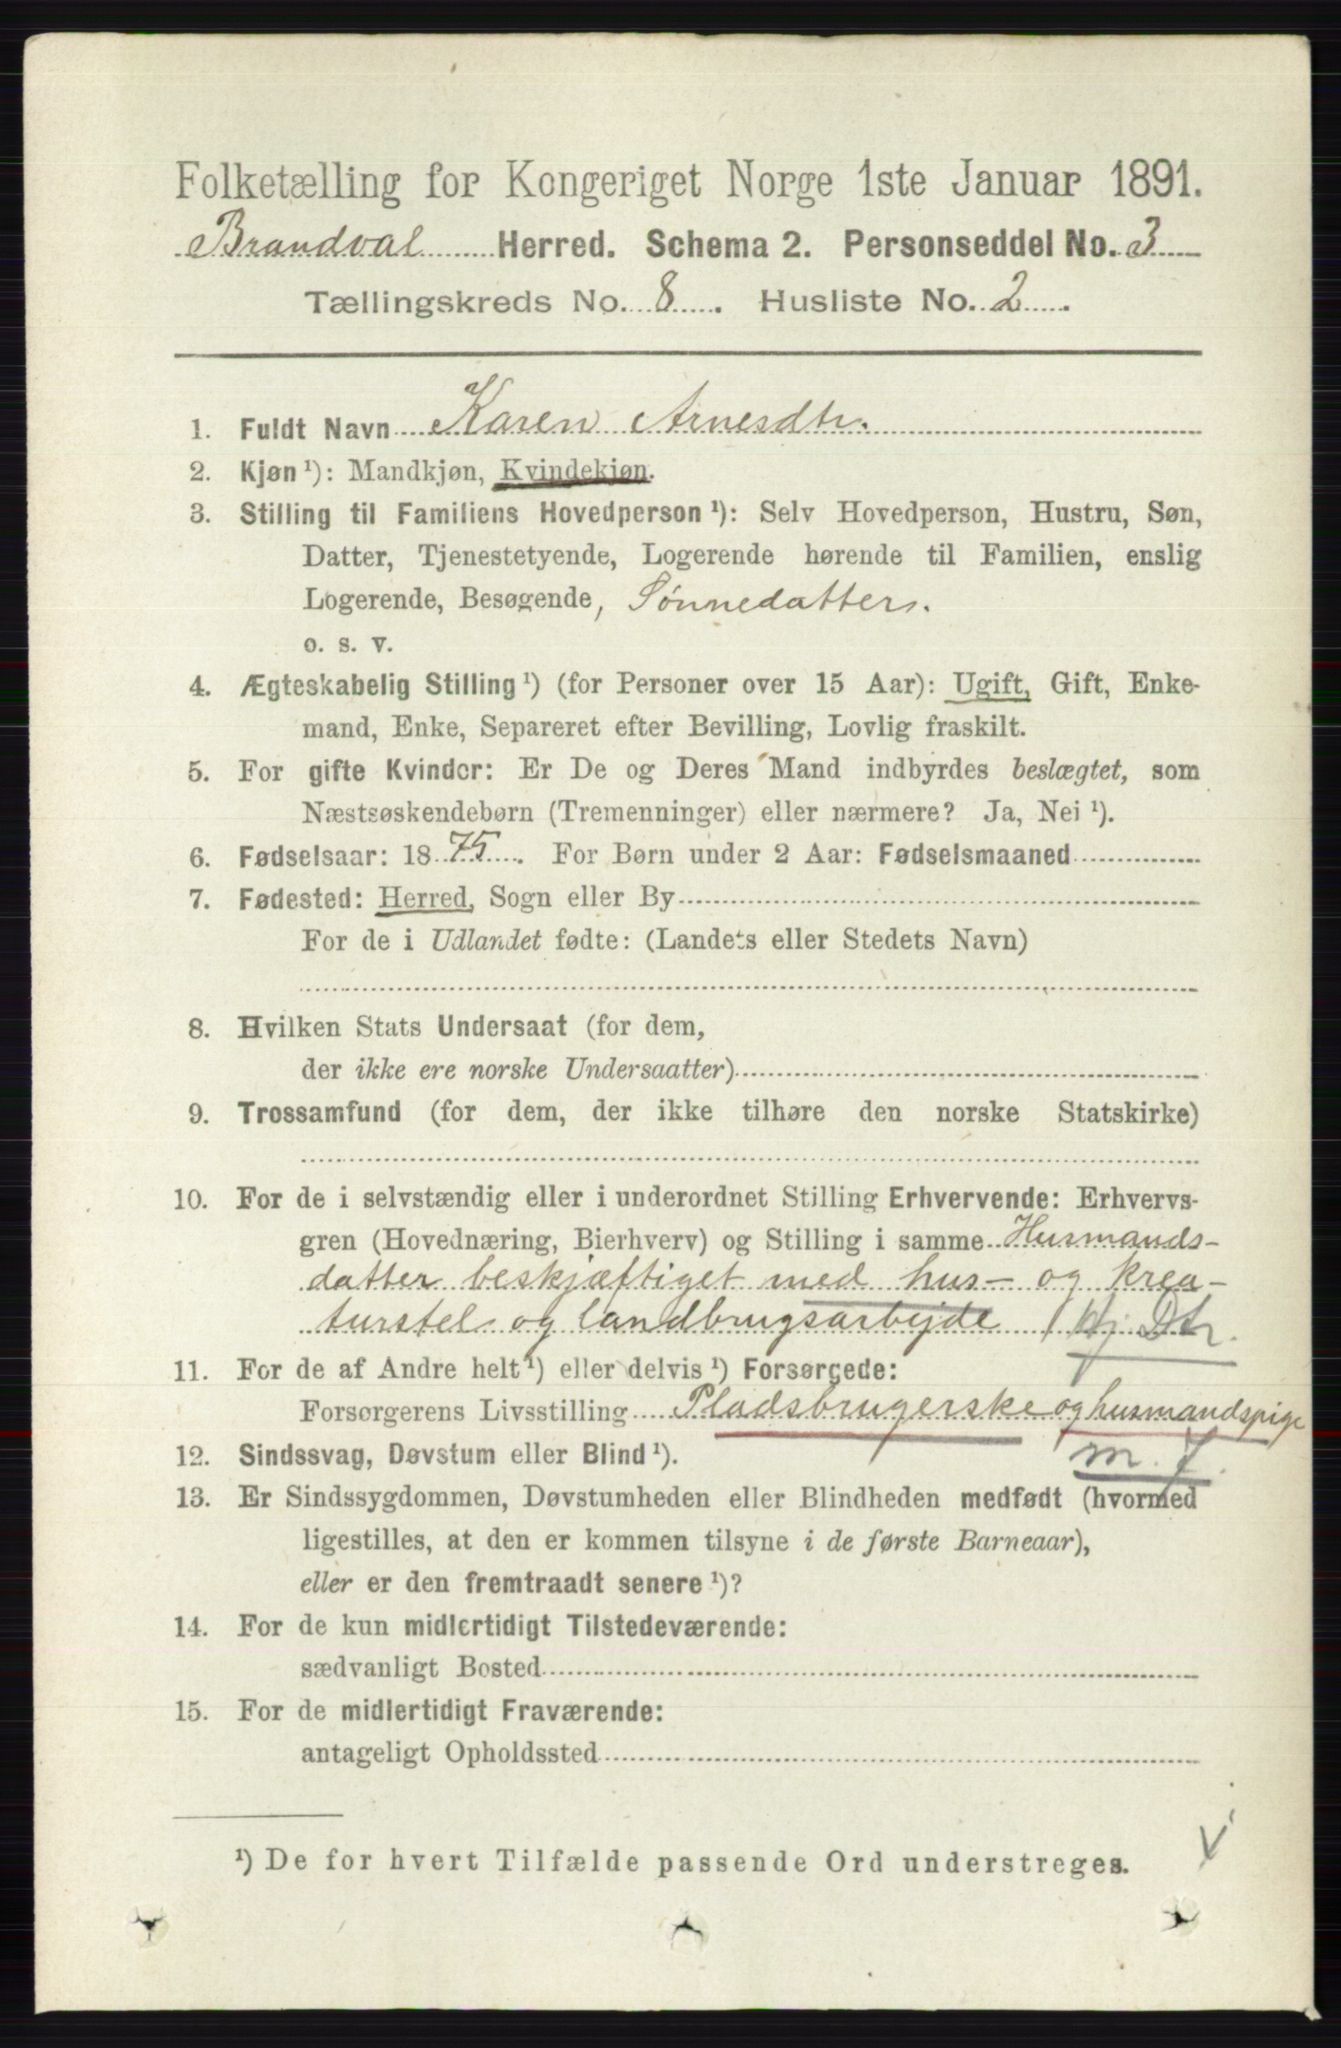 Folketælling for Kongeriget Norge 1ste Januar 1891.
Brandval Herred. Schema 2. Personseddel No. 3
Tællingskreds No. 8. Husliste No. 2.
1. Fuldt Navn Karen Arnesdtr.
2. Kjøn ¹): Mandkjøn, Kvindekjøn.
3. Stilling til Familiens Hovedperson ¹): Selv Hovedperson, Hustru, Søn,
Datter, Tjenestetyende, Logerende hørende til Familien, enslig
Logerende, Besøgende, Sønnedatter.
o. s. v.
4. Ægteskabelig Stilling ¹) (for Personer over 15 Aar): Ugift, Gift, Enke-
mand, Enke, Separeret efter Bevilling, Lovlig fraskilt.
5. For gifte Kvinder: Er De og Deres Mand indbyrdes beslægtet, som
Næstsøskendebørn (Tremenninger) eller nærmere? Ja, Nei ¹).
6. Fødselsaar: 1875. For Børn under 2 Aar: Fødselsmaaned
7. Fødested: Herred, Sogn eller By
For de i Udlandet fødte: (Landets eller Stedets Navn)
8. Hvilken Stats Undersaat (for dem,
der ikke ere norske Undersaatter)
9. Trossamfund (for dem, der ikke tilhøre den norske Statskirke)
10. For de i selvstændig eller i underordnet Stilling Erhvervende: Erhvervs-
gren (Hovednæring, Bierhverv) og Stilling i samme Husmands-
datter beskjæftiget med hus- og krea-
turstel og landbrugsarbejde Dtr.
11. For de af Andre helt ¹) eller delvis ¹) Forsørgede:
Forsørgerens Livsstilling Pladsbrugerske og husmandspige
12. Sindssvag, Døvstum eller Blind ¹). m. J.
13. Er Sindssygdommen, Døvstumheden eller Blindheden medfødt (hvormed
ligestilles, at den er kommen tilsyne i de første Barneaar),
eller er den fremtraadt senere ¹)?
14. For de kun midlertidigt Tilstedeværende:
sædvanligt Bosted
15. For de midlertidigt Fraværende:
antageligt Opholdssted
¹) De for hvert Tilfælde passende Ord understreges.